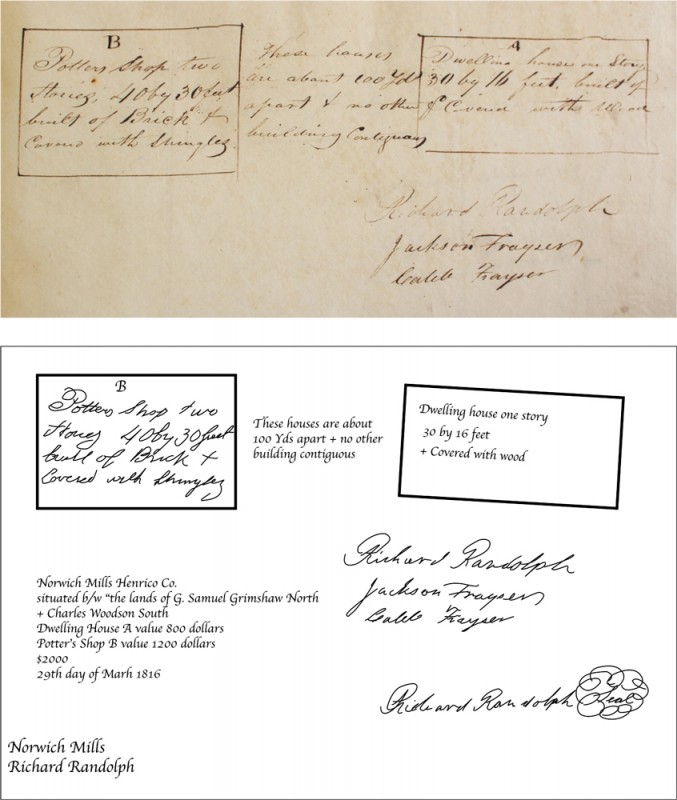 B
Potters Shop two
Stories, 40 by 30 feet
built of Brick &
Covered with Shingles
These houses
are about 100 Yds
apart & no other
building Contiguous
A
Dwelling house one Story
30 by 16 feet, built of
& Covered with Wood
Richard Randolph
Jackson Frayser
Caleb Frayser
B
Potters Shop two
Stories 40 by 30 feet
built of Brick +
Covered with Shingles
These houses are about
100 Yds apart + no other
building contiguous
Dwelling house one story
30 by 16 feet
+ Covered with wood
Richard Randolph
Jackson Frayser
Caleb Frayser
Norwich Mills Henrico Co.
situated b/w "the lands of G. Samuel Grimshaw North
+ Charles Woodson South
Dwelling House A value 800 dollars
Potter's Shop B value 1200 dollars
$2000
29th day of Marh 1816
Richard Randolph Seal
Norwich Mills
Richard Randolph